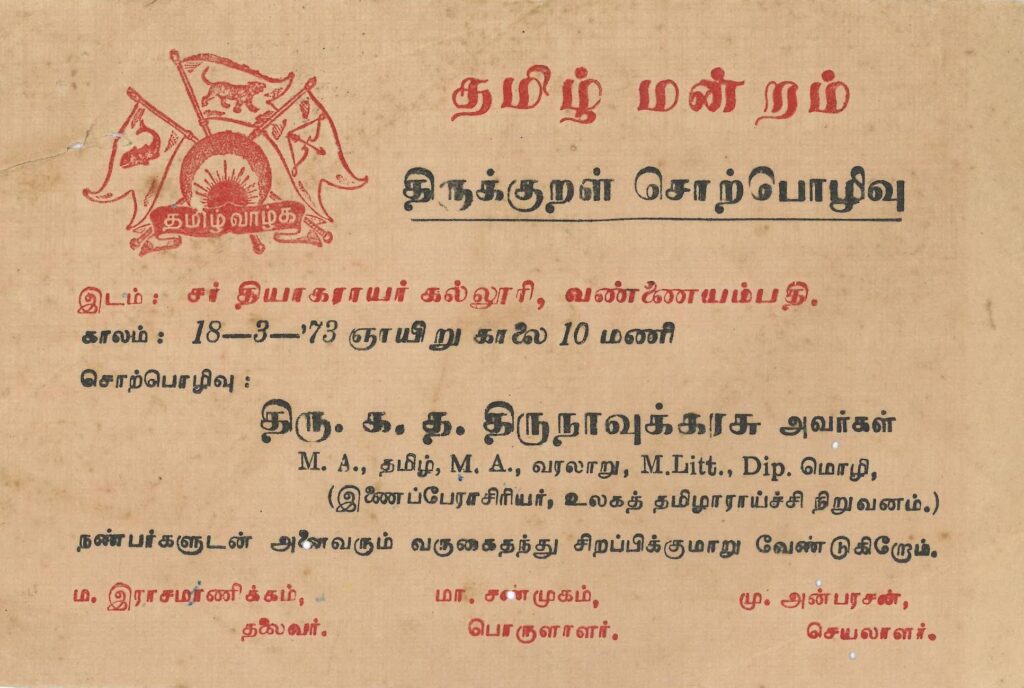 தமிழ் மன்றம்
தமிழ் வாழ்க
திருக்குறள் சொற்பொழிவு
இடம் : சர் தியாகராயர் கல்லூரி, வண்ணையம்பதி.
காலம் : 18—3—'73 ஞாயிறு காலை 10 மணி
சொற்பொழிவு :
திரு. க. த. திருநாவுக்கரசு அவர்கள்
M. A., தமிழ், M. A., வரலாறு, M.Litt., Dip. மொழி,
(இணைப்பேராசிரியர், உலகத் தமிழாராய்ச்சி நிறுவனம்.)
நண்பர்களுடன் அனைவரும் வருகைதந்து சிறப்பிக்குமாறு வேண்டுகிறோம்.
ம. இராசமாணிக்கம், மா. சண்முகம், மு. அன்பரசன்,
தலைவர். பொருளாளர். செயலாளர்.